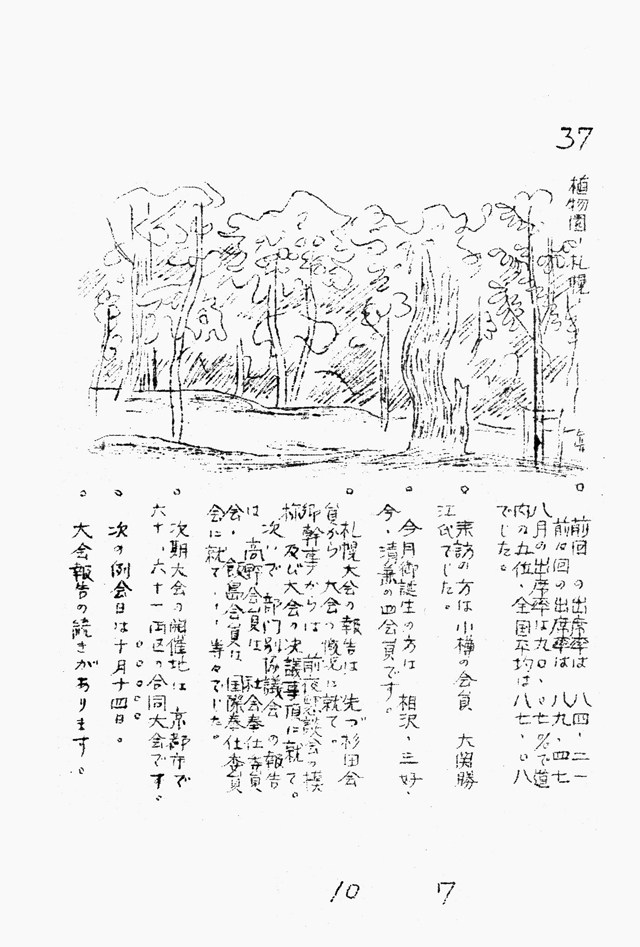 37
植物園・札幌
○前回の出席率は 八四・二一
前々回の出席率は 八九・四七
八月の出席率は九〇・〇七%で道
内の五位、全国平均は八七・〇八
でした。
○来訪の方は小樽の会員 大関勝
江氏でした。
○今月御誕生の方は、相沢、三好、
今、清兼の四会員です。
○札幌大会の報告は、先づ杉田会
員から、大会の概況に就て。
幹事からは、前夜懇談会の模
様、及び大会の決議事項に就て。
次いで、部門別協議会の報告
は、高野会員は、社会奉仕委員
会、飯島会員は、国際奉仕委員
会に就て・・等々でした。
○次期大会の開催地は、京都市で
六十、六十一両区の合同大会です。
○次の例会日は十月十四日。
○大会報告の続きがあります。
10 7